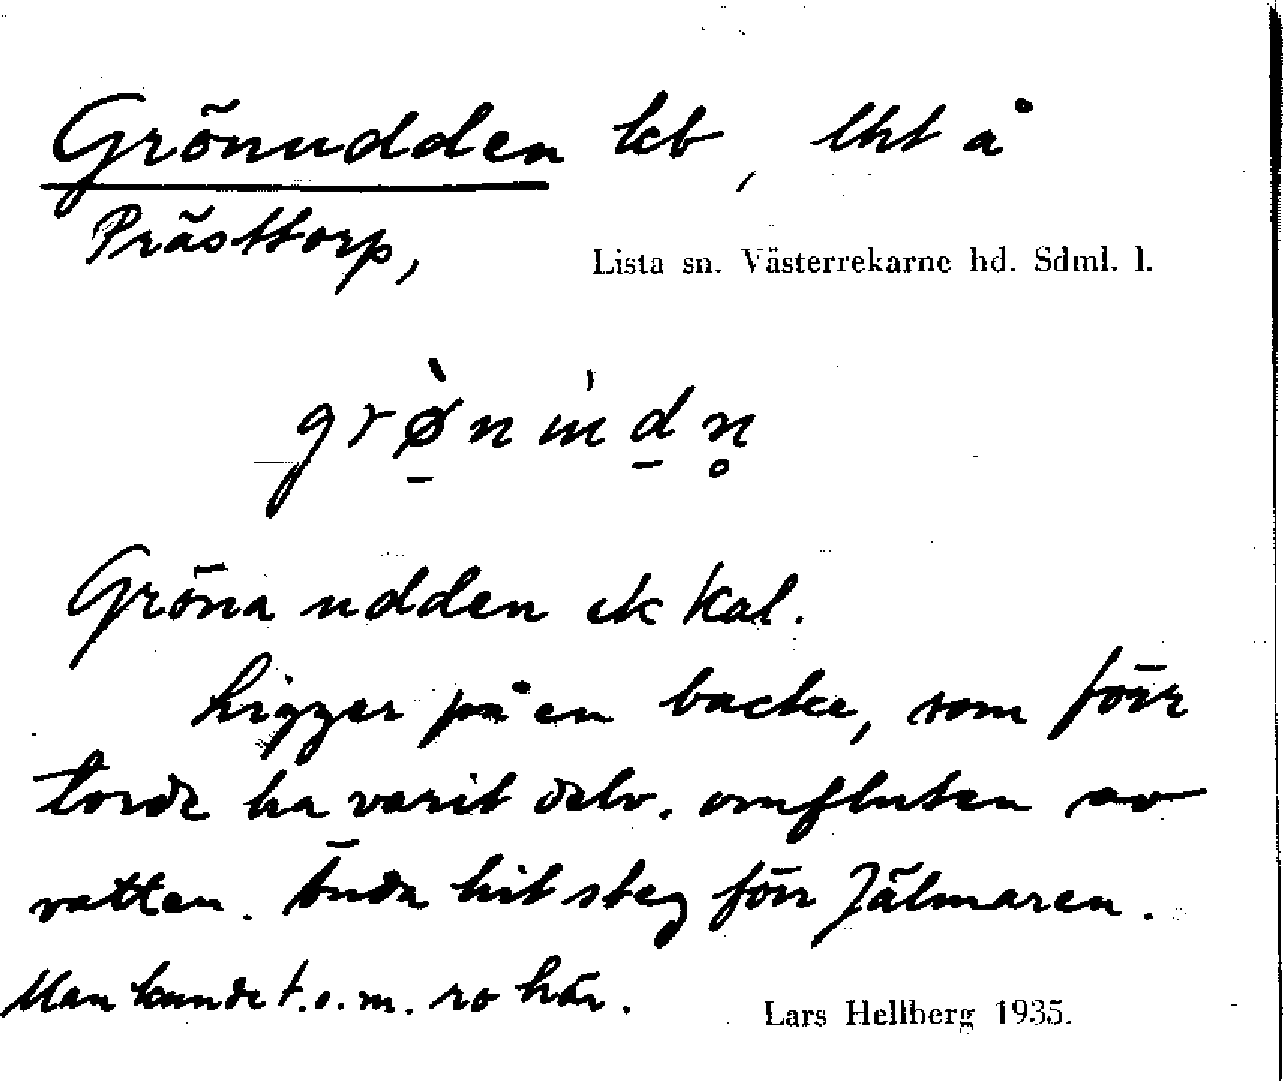 Grönudden lrb, lht å
Prästtorp,
Lista sn. Västerrekarne hd. Sdml. l.
Gröna udden ek kal.
Ligger på en backe, som förr
torde ha varit delv. omfluten av
vatten. Ända hit steg förr Jälmaren.
Man kunde t.o.m. ro här.
Lars Hellberg 1935.